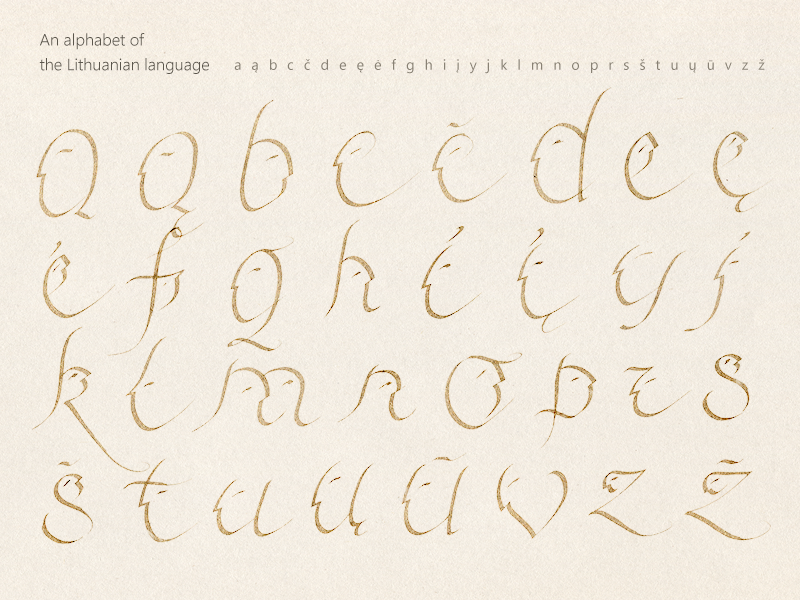 An alphabet of
the Lithuanian language a ą b c č d e ę ė f g h i į y j k l m n o p r s š t u ų ū v z ž
a ą b c č d e ę
ė f g h i į y j
k l m n o p r s
š t u ų ū v z ž